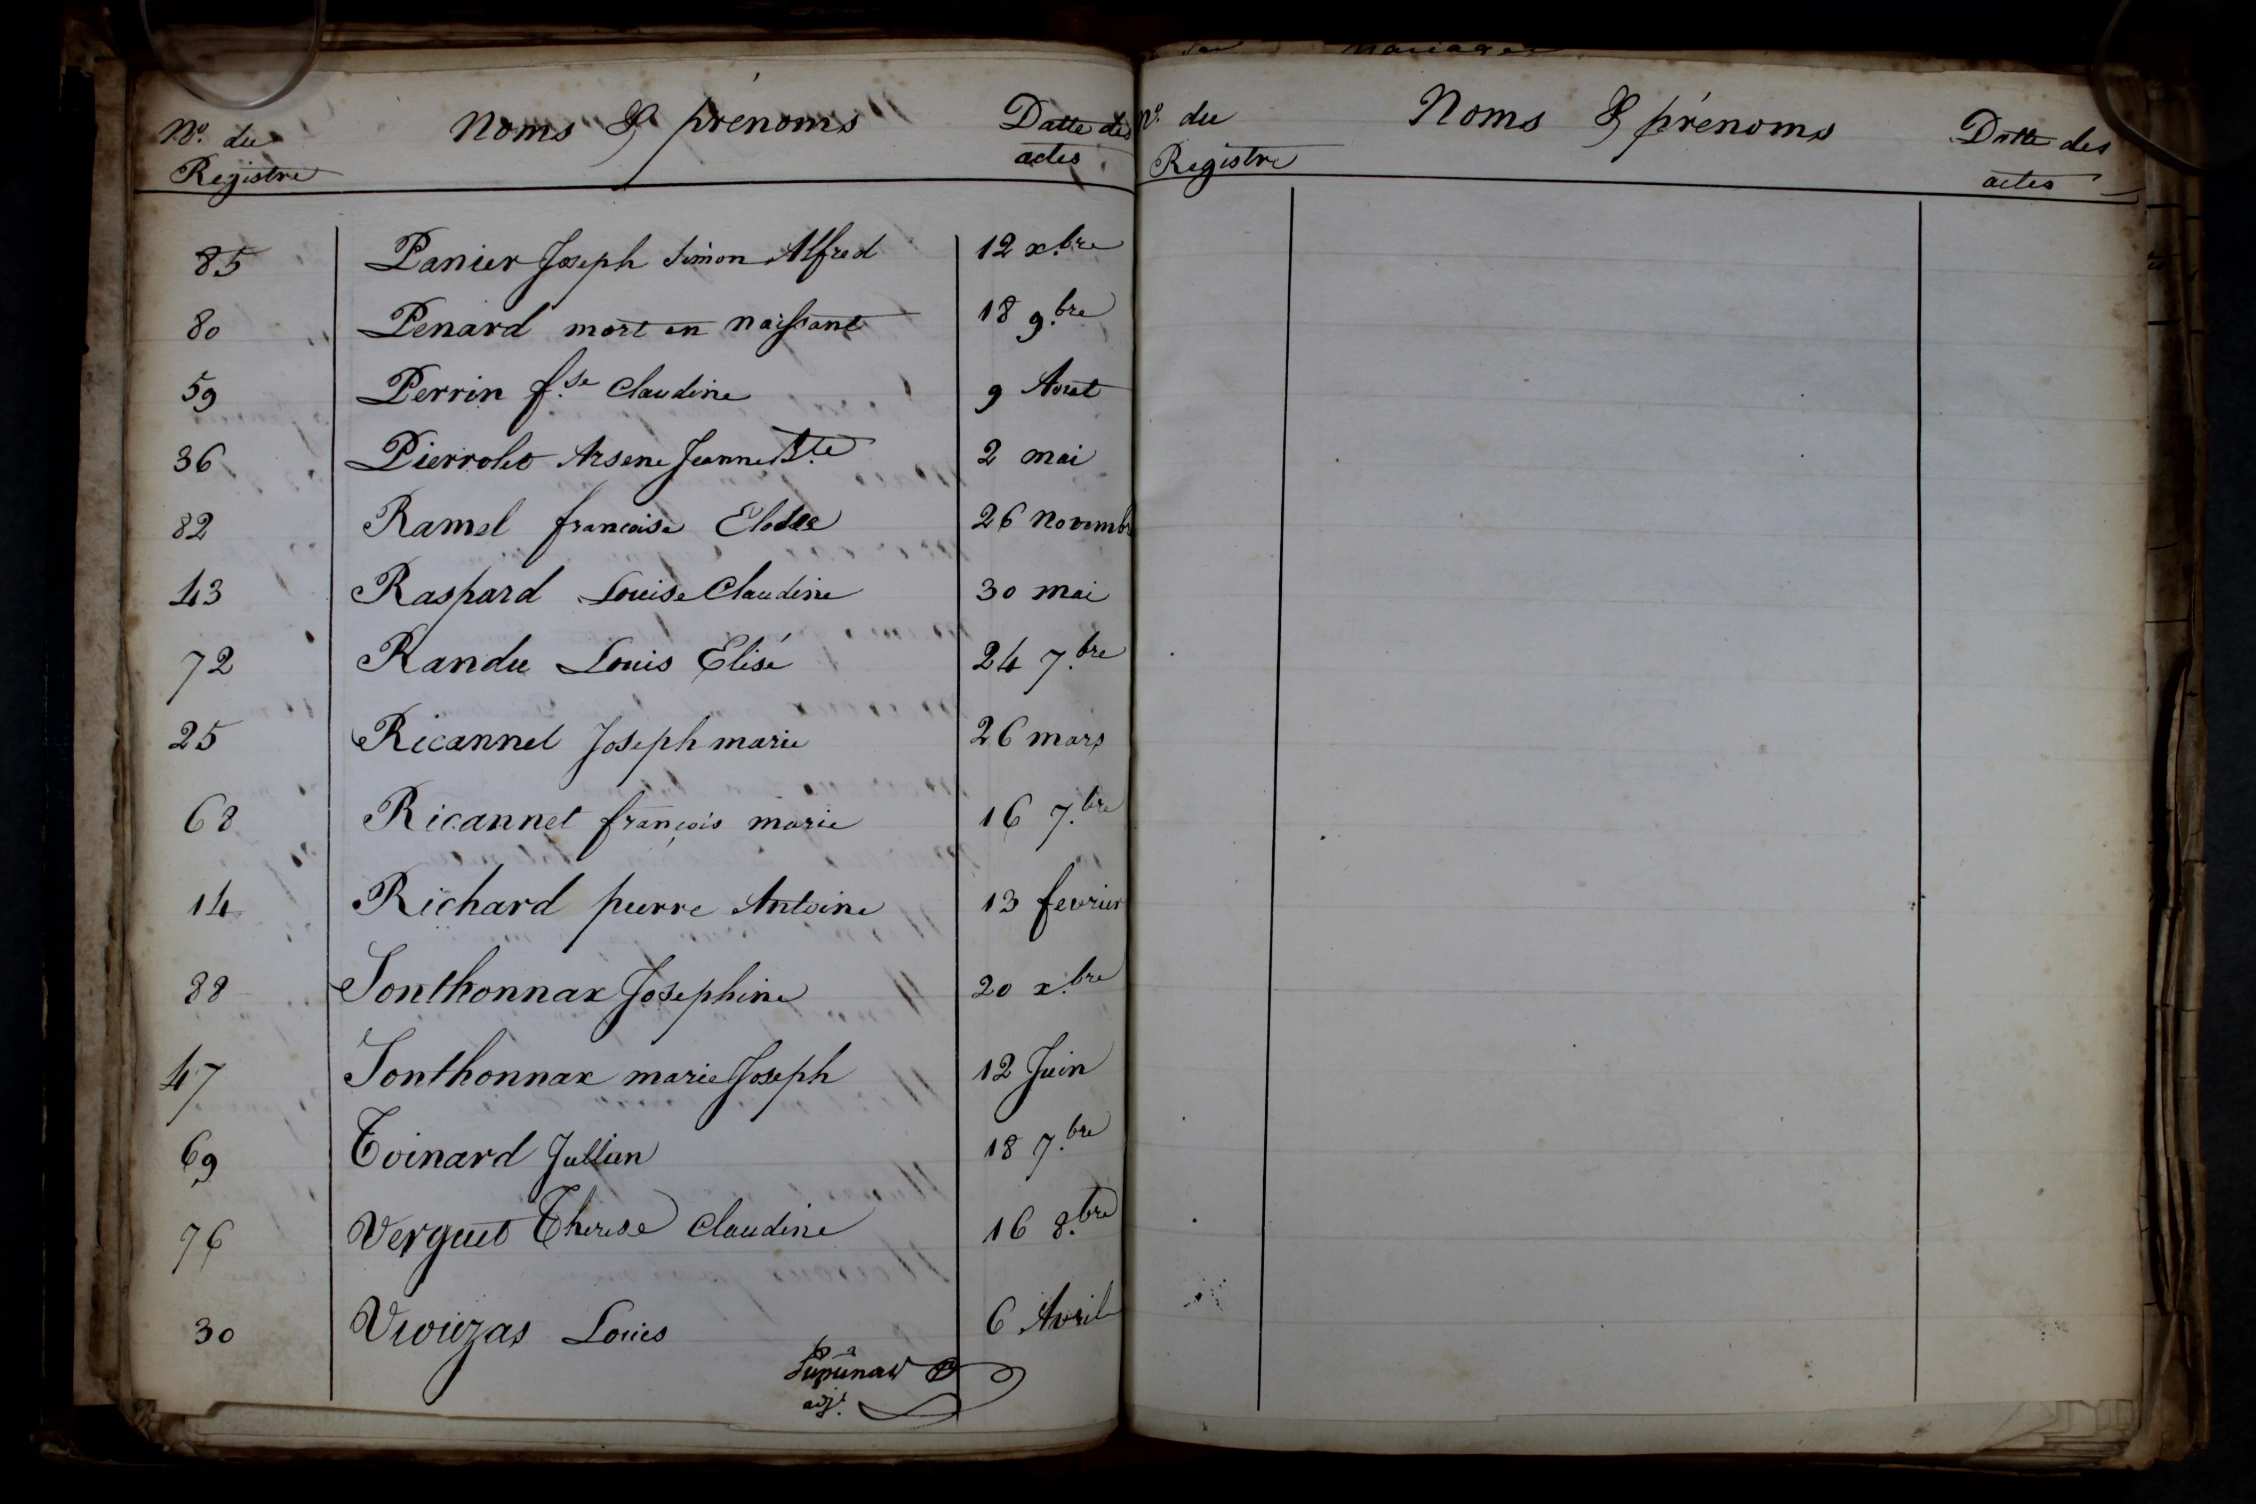 N.º du Registre Noms & prénoms Datte des actes
85 Panier Joseph Simon Alfred 12 x.bre
80 Penard mort en naissant 18 9.bre
59 Perrin f.se Claudine 9 Aout
36 Pierrolet Arsene Jeanne B.te 2 mai
82 Ramel francoise Elodee 26 Novembre
43 Raspard Louise Claudine 30 mai
72 Randu Louis Elisé 24 7.bre
25 Ricannet Joseph marie 26 mars
68 Ricannet françois marie 16 7.bre
14 Richard pierre Antoine 13 fevrier
88 Sonthonnax Josephine 20 x.bre
47 Sonthonnax marie Joseph 12 Juin
69 Toinard Jullien 18 7.bre
76 Verguet Therese Claudine 16 8.bre
30 Louis 6 Avril
adj.t
mariages
N.º du Registre Noms & prénoms Datte des actes